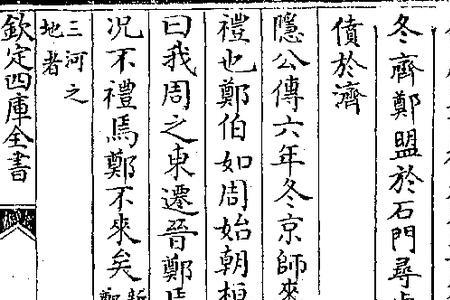 冬齊鄭盟於石門尋
僨於濟
隱公傳六年冬京師來
禮也鄭伯如周始朝桓
曰我周之東遷晉鄭焉
況不禮焉鄭不來矣
三河之
地者
欽定四庫全書